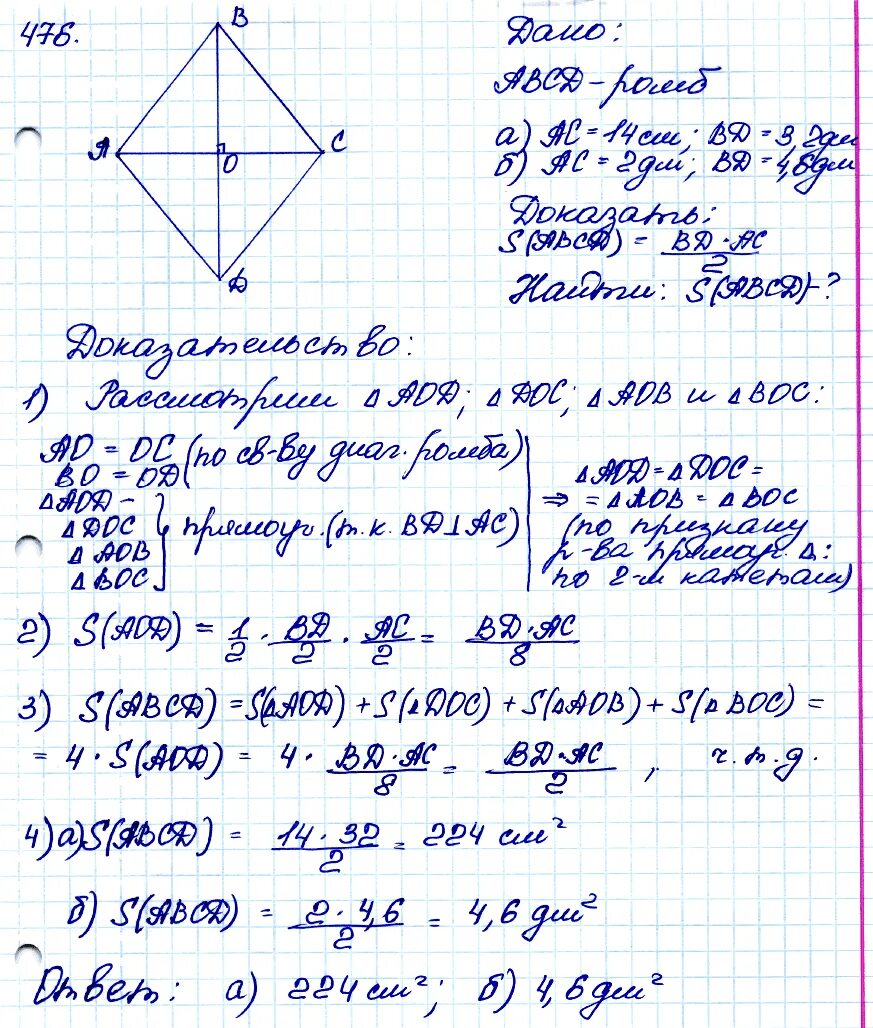 476.
B
A
C
O
D
Дано:
ABCD - ромб
а) AC = 14 см; BD = 3,2 дм
б) AC = 2 дм; BD = 4,6 дм
Доказать:
S(ABCD) = BD·AC / 2
Найти: S(ABCD) - ?
Доказательство:
1) Рассмотрим △AOD; △DOC; △AOB и △BOC:
AO = OC (по св-ву диаг. ромба)
BO = OD
△AOD -
△DOC
△AOB
△BOC
} прямоуг. (т.к. BD⊥AC)
△AOD = △DOC =
⇒ = △AOB = △BOC
(по признаку
р-ва прямоуг. △:
по 2-м катетам)
2) S(AOD) = 1/2 · BD/2 · AC/2 = BD·AC / 8
3) S(ABCD) = S(△AOD) + S(△DOC) + S(△AOB) + S(△BOC) =
= 4 · S(AOD) = 4 · BD·AC / 8 = BD·AC / 2 , ч.т.д.
4) а) S(ABCD) = 14·32 / 2 = 224 см²
б) S(ABCD) = 2·4,6 / 2 = 4,6 дм²
Ответ: а) 224 см²; б) 4,6 дм²